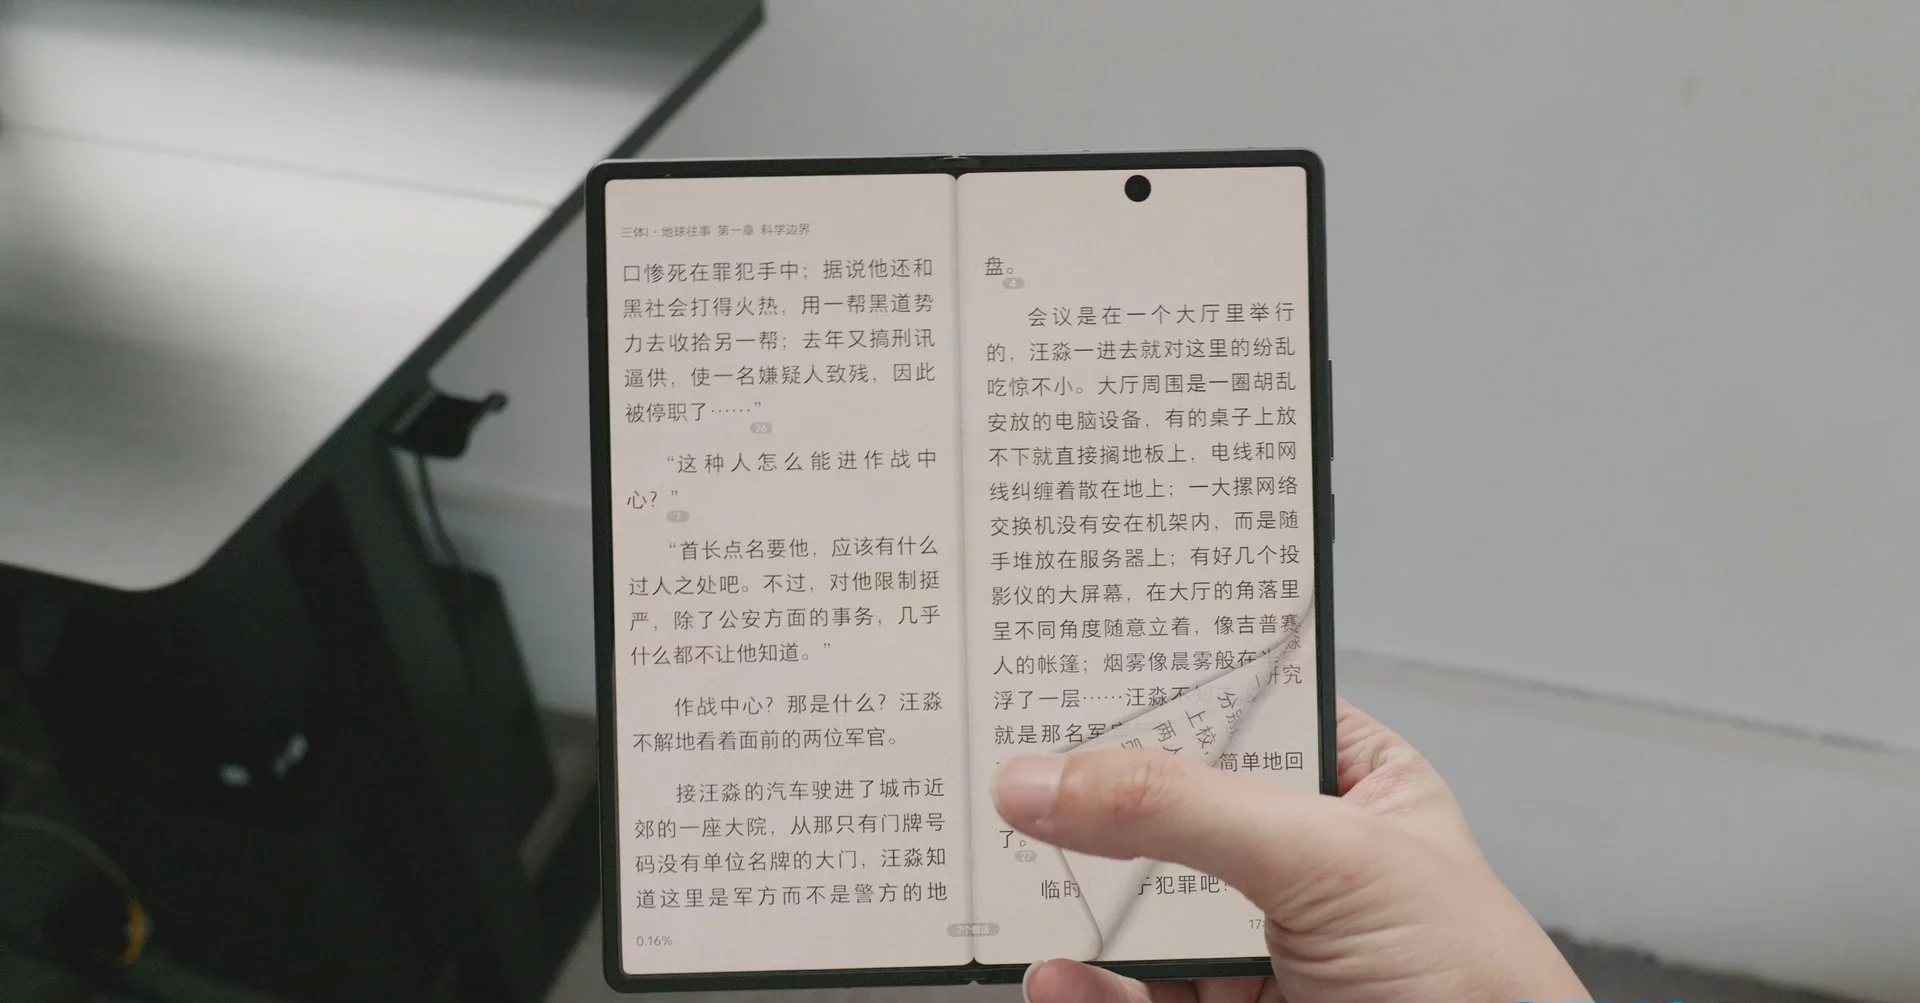 三体I·地球往事 第一章 科学边界
口惨死在罪犯手中；据说他还和
黑社会打得火热，用一帮黑道势
力去收拾另一帮；去年又搞刑讯
逼供，使一名嫌疑人致残，因此
被停职了……”
26
“这种人怎么能进作战中
心？”
7
“首长点名要他，应该有什么
过人之处吧。不过，对他限制挺
严，除了公安方面的事务，几乎
什么都不让他知道。”
作战中心？那是什么？汪淼
不解地看着面前的两位军官。
接汪淼的汽车驶进了城市近
郊的一座大院，从那只有门牌号
码没有单位名牌的大门，汪淼知
道这里是军方而不是警方的地
0.16%
7个想法
盘。
4
会议是在一个大厅里举行
的，汪淼一进去就对这里的纷乱
吃惊不小。大厅周围是一圈胡乱
安放的电脑设备，有的桌子上放
不下就直接搁地板上，电线和网
线纠缠着散在地上；一大摞网络
交换机没有安在机架内，而是随
手堆放在服务器上；有好几个投
影仪的大屏幕，在大厅的角落里
呈不同角度随意立着，像吉普赛
人的帐篷；烟雾像晨雾般在
浮了一层……汪淼不
研究
就是那名军
分别
上校，
两人
简单地回
了。
27
临时
犯罪吧？
17: